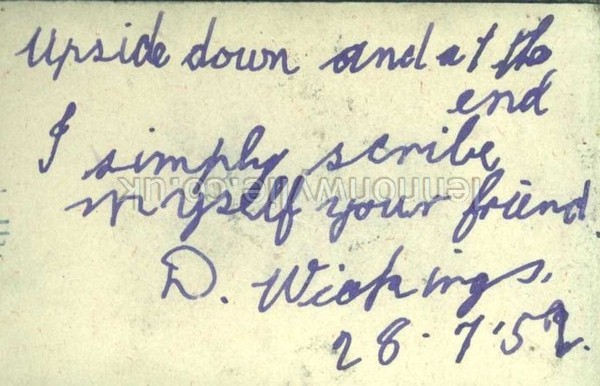 Upside down and at the
end
I simply scribe
myself your friend
D. Wickings.
28.7.52.
lennonwylie.co.uk